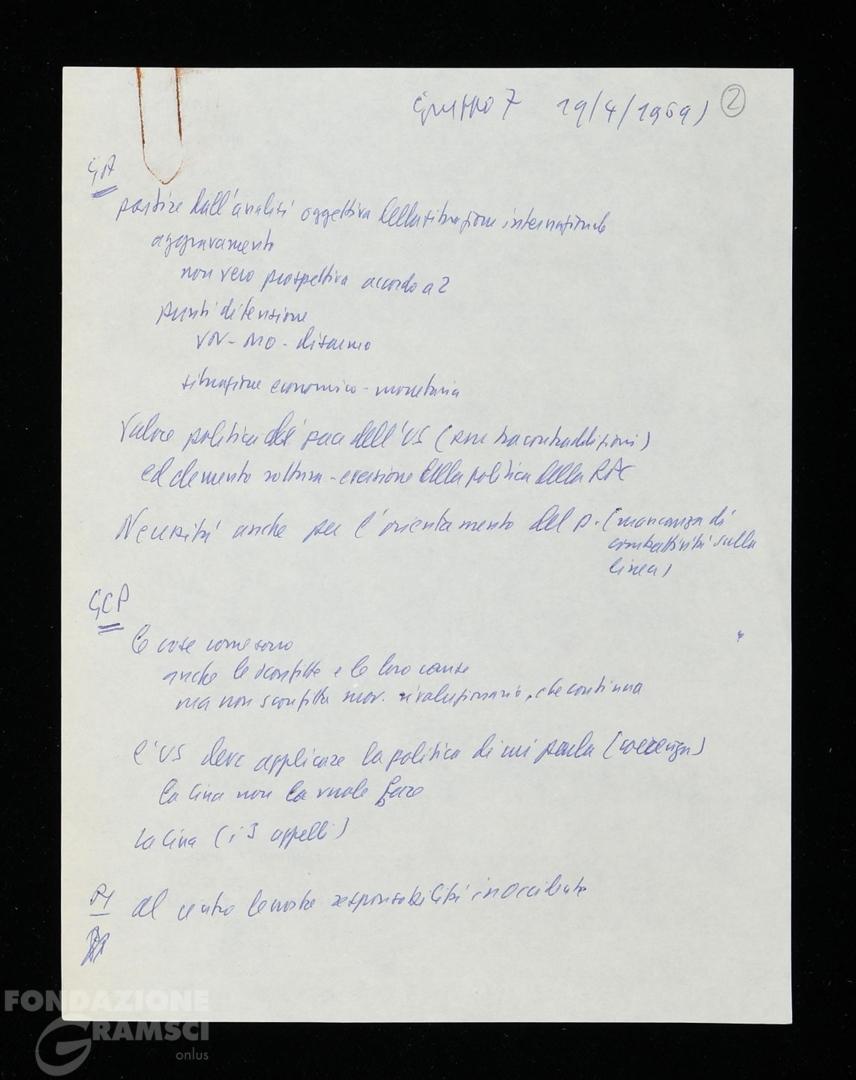 Gruppo 7 19/4/1969) 2
GA
partire dall'analisi oggettiva della situazione internazionale
aggravamento
non vero prospettiva accordo a 2
punti di tensione
VN - MO - disarmo
situazione economico - monetaria
Valore politica di pace dell'US (pur tra contraddizioni)
ed elemento rottura - eversione della politica della
Necessità anche per l'orientamento del p. (mancanza di
combattività sulla
linea)
GCP
le cose come sono
anche le sconfitte e le loro cause
ma non sconfitta mov. rivoluzionario, che continua
l'US deve applicare la politica di cui parla
la Cina non la vuole fare
La Cina (i 3 appelli)
al centro le nostre responsabilità in occidente
FONDAZIONE
GRAMSCI
onlus